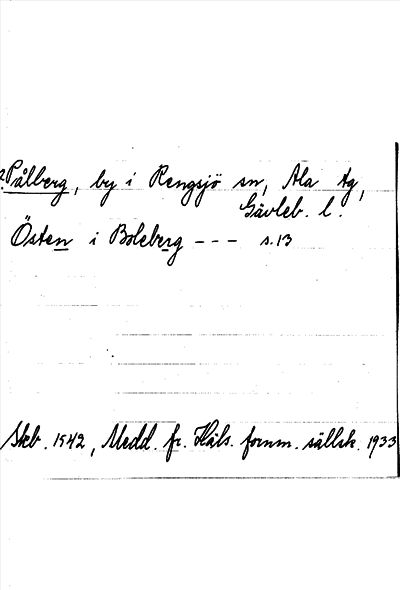 ? Pålberg, by i Rengsjö sn, Ala tg,
Gävleb. l.
Östen i Boleberg --- s. 13
Skb. 1542, Medd. fr. Häls. fornm. sällsk. 1933